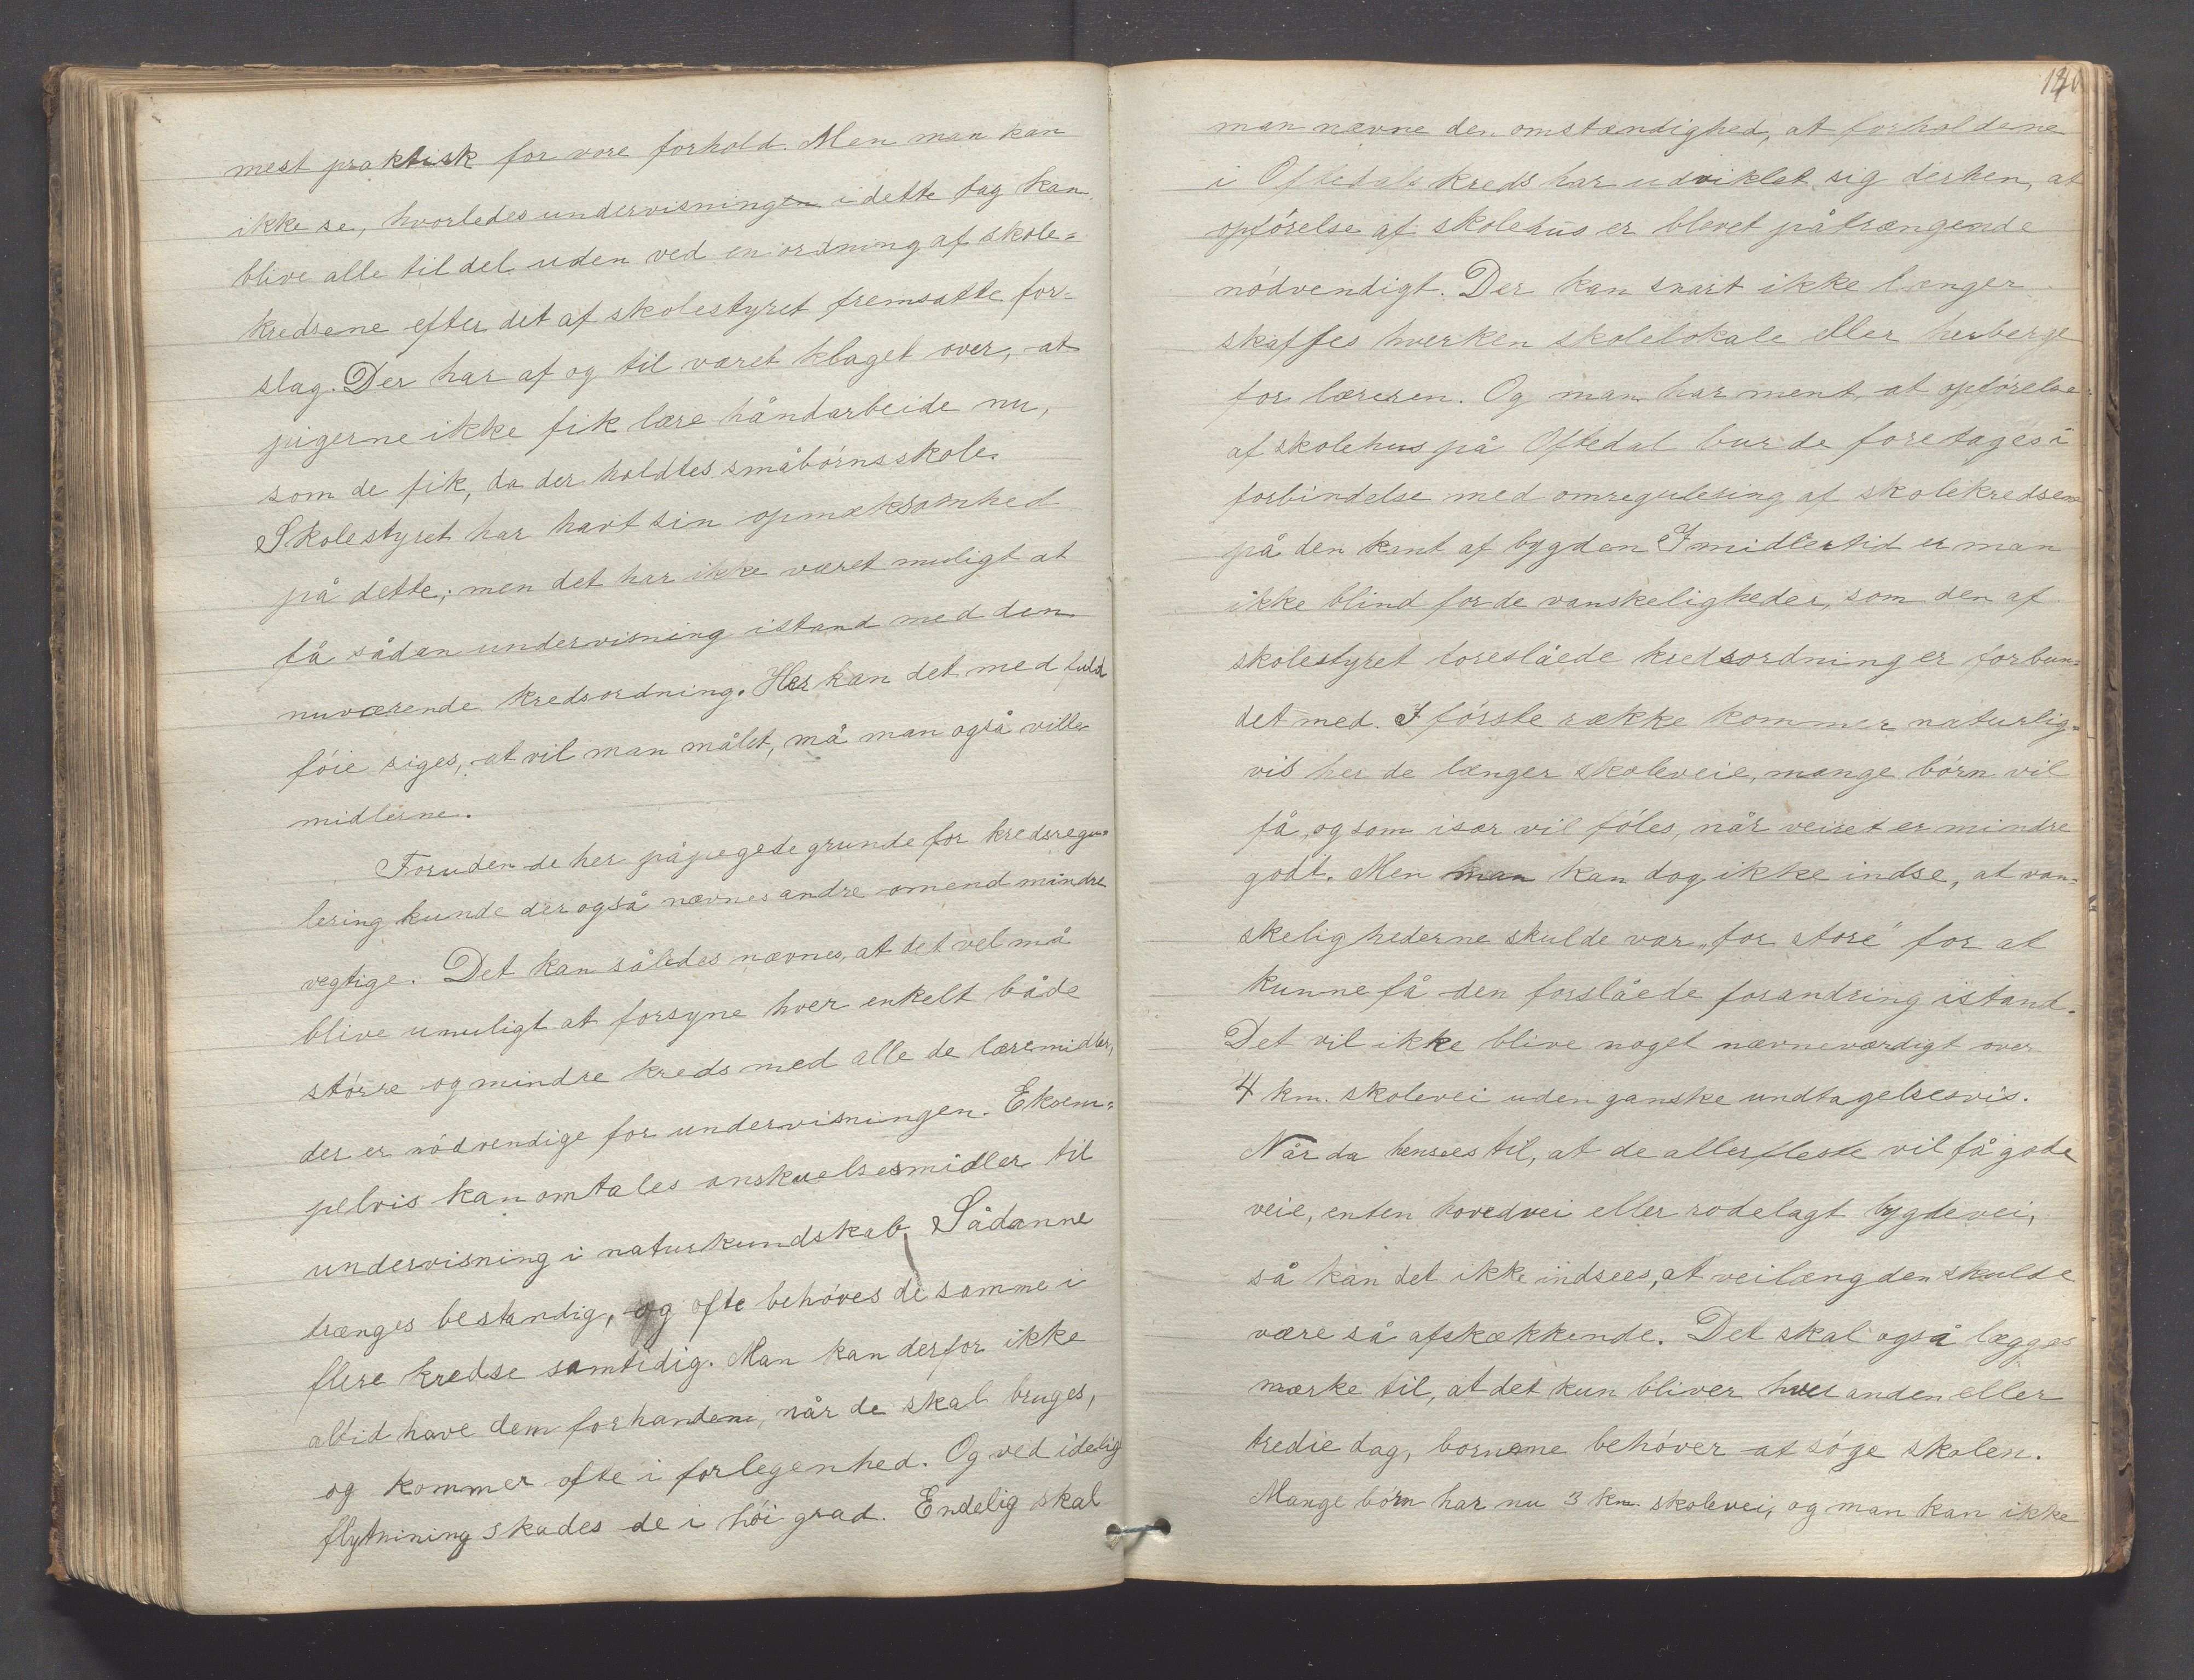 mest praktisk for vore forhold. Men man kan
ikke se, hvorledes undervisningen i dette fag kan
blive alle til del uden ved en ordning af skole=
kredsene efter det af skolestyret fremsatte for=
slag. Der har af og til været klaget over, at
pigerne ikke fik lære håndarbeide nu,
som de fik, da der holdtes småbörnsskole.
Skolestyret har havt sin opmæksomhed
på dette; men det har ikke været muligt at
få sådan undervisning istand med den
nuværende kredsordning. Her kan det med fuld
föie siges, at vil man målet, må man også ville
midlerne.
Foruden de her påpegede grunde for kredsregu=
lering kunde der også nævnes andre omend mindre
vegtige. Det kan således nævnes, at det vel må
blive umuligt at forsyne hver enkelt både
större og mindre kreds med alle de læremidler,
der er nödvendige for undervisningen. Eksem=
pelvis kan omtales anskuelsesmidler til
undervisning i naturkundskab. Sådanne
trænges bestandig, og ofte behöves de samme i
flere kredse samtidig. Man kan derfor ikke
altid have dem forhanden, når de skal bruges,
og kommer ofte i forlegenhed. Og ved idelig
flytnining skades de i höi grad. Endelig skal
140
man nævne den omstændighed, at forholdene
i Oftedals kreds har udviklet sig derhen, at
opförelse af skolehus er blevet påtrængende
nödvendigt. Der kan snart ikke længer
skaffes hverken skolelokale eller herberge
for læreren. Og man har ment, at opförelse
af skolehus på Oftedal burde foretages i
forbindelse med omregulering af skolekredsene
på den kant af bygden Imidlertid er man
ikke blind for de vanskeligheder, som den af
skolestyret foreslåede kredsordning er forbun=
det med. I förste række kommer naturlig=
vis her de længer skoleveie, mange börn vil
få, og som især vil föles, når veiret er mindre
godt. Men man kan dog ikke indse, at van=
skelighederne skulde vær „for store" for at
kunne få den forslåede forandring istand.
Det vil ikke blive noget nævneværdigt over
4 km. skolevei uden ganske undtagelsesvis.
Når da hensees til, at de allerfleste vil få gode
veie, enten hovedvei eller rodelagt bygdevei,
så kan det ikke indsees, at veilængden skulde
være så afskækkende. Det skal også lægges
mærke til, at det kun bliver hver anden eller
tredie dag, bornene behöver at söge skolen.
Mange börn har nu 3 km. skolevei, og man kan ikke